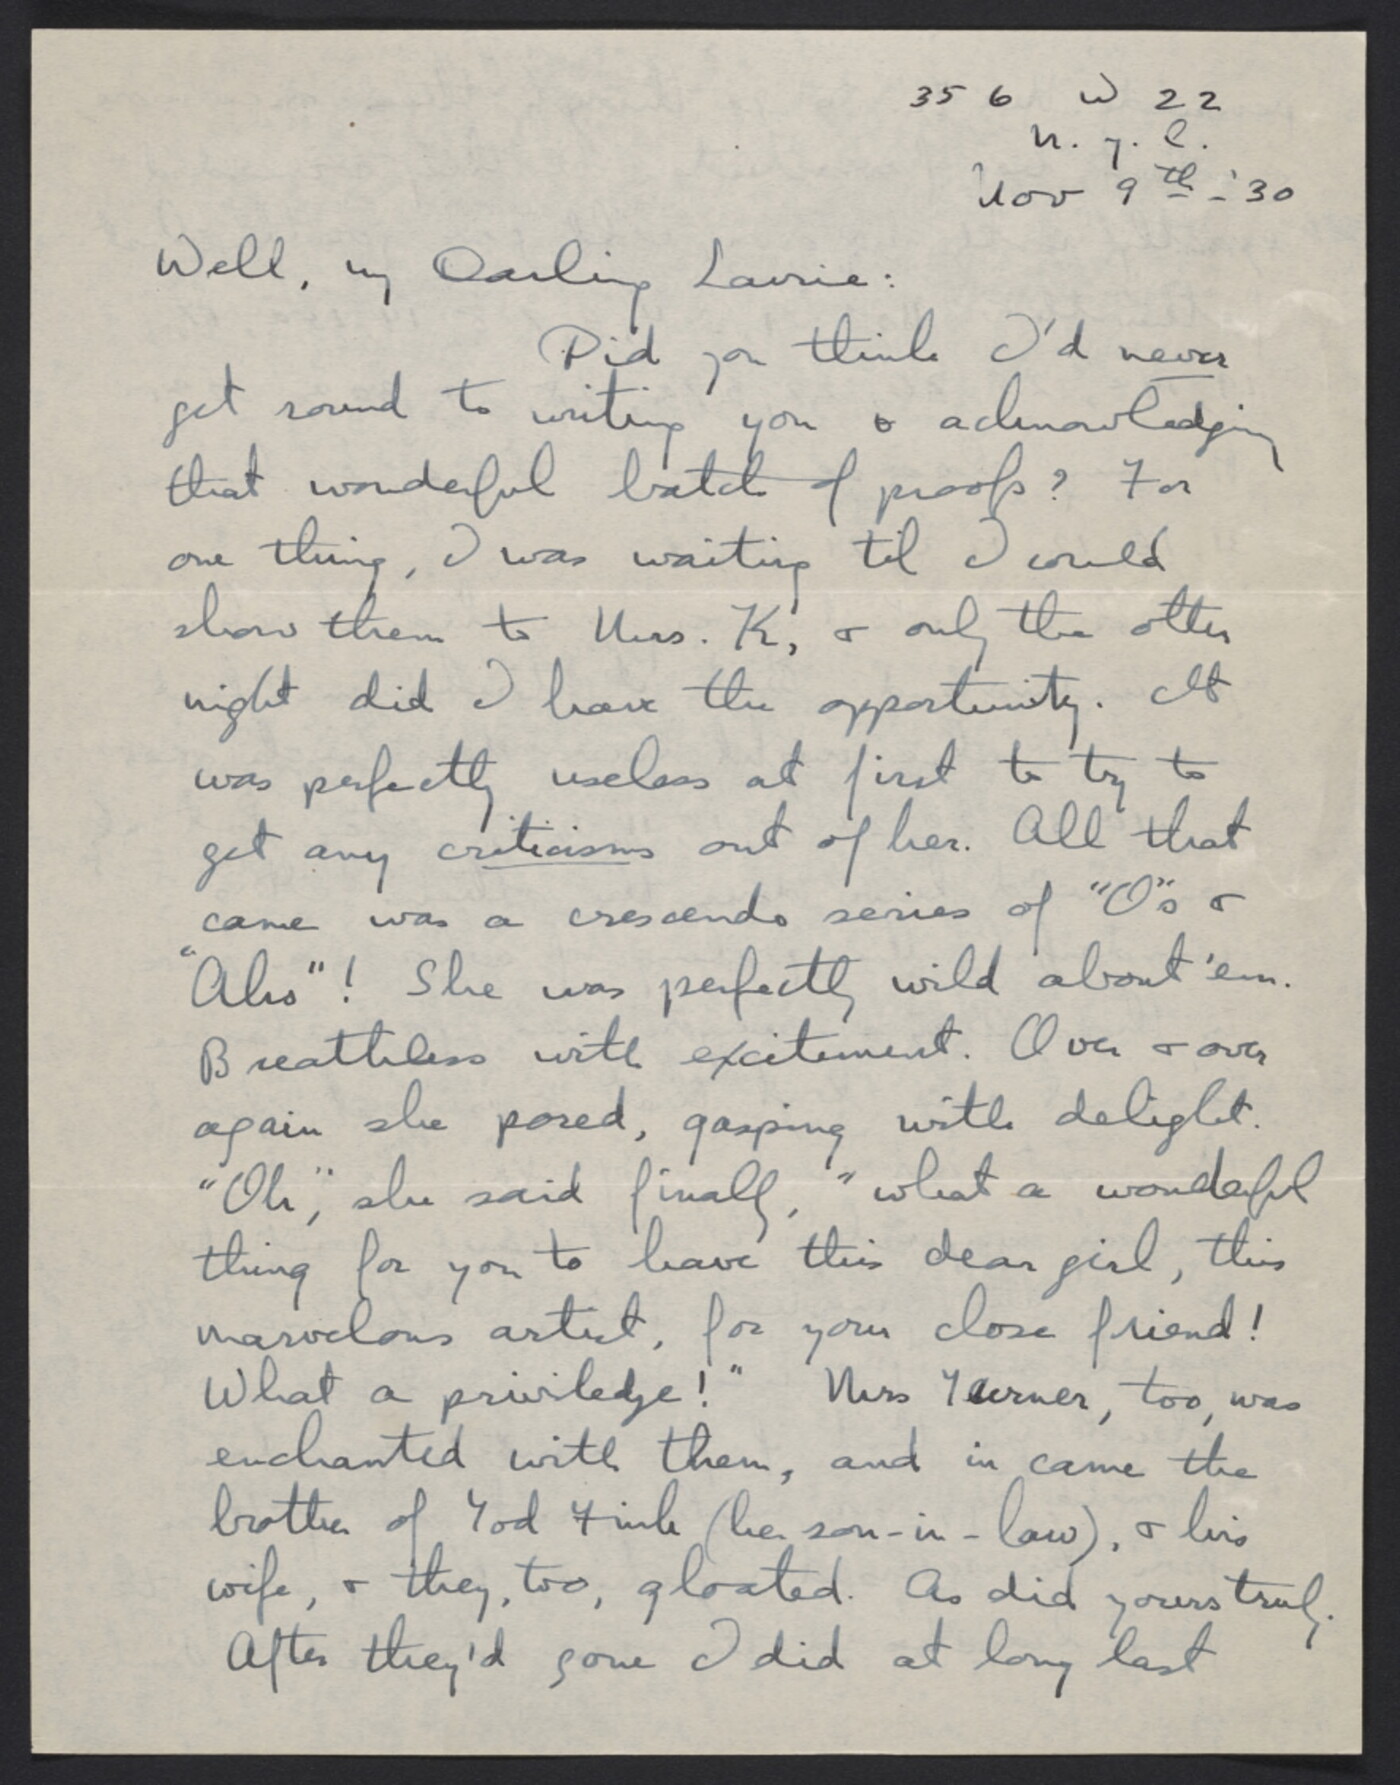 356 W 22
N. Y. C.
Nov 9th - '30
Well, my Darling Laurie:
Did you think I'd never
get round to writing you & acknowledging
that wonderful batch of proofs? For
one thing, I was waiting til I could
show them to Mrs. K, & only the other
night did I have the opportunity. It
was perfectly useless at first to try to
get any criticisms out of her. All that
came was a crescendo series of "O"s &
"Ahs"! She was perfectly wild about 'em.
Breathless with excitement. Over & over
again she pored, gasping with delight.
"Oh," she said finally, "what a wonderful
thing for you to have this dear girl, this
marvelous artist, for your close friend!
What a priviledge!" Mrs Turner, too, was
enchanted with them, and in came the
brother of Tod Fink (her son-in-law), & his
wife, & they, too, gloated. As did yours truly.
After they'd gone I did at long last